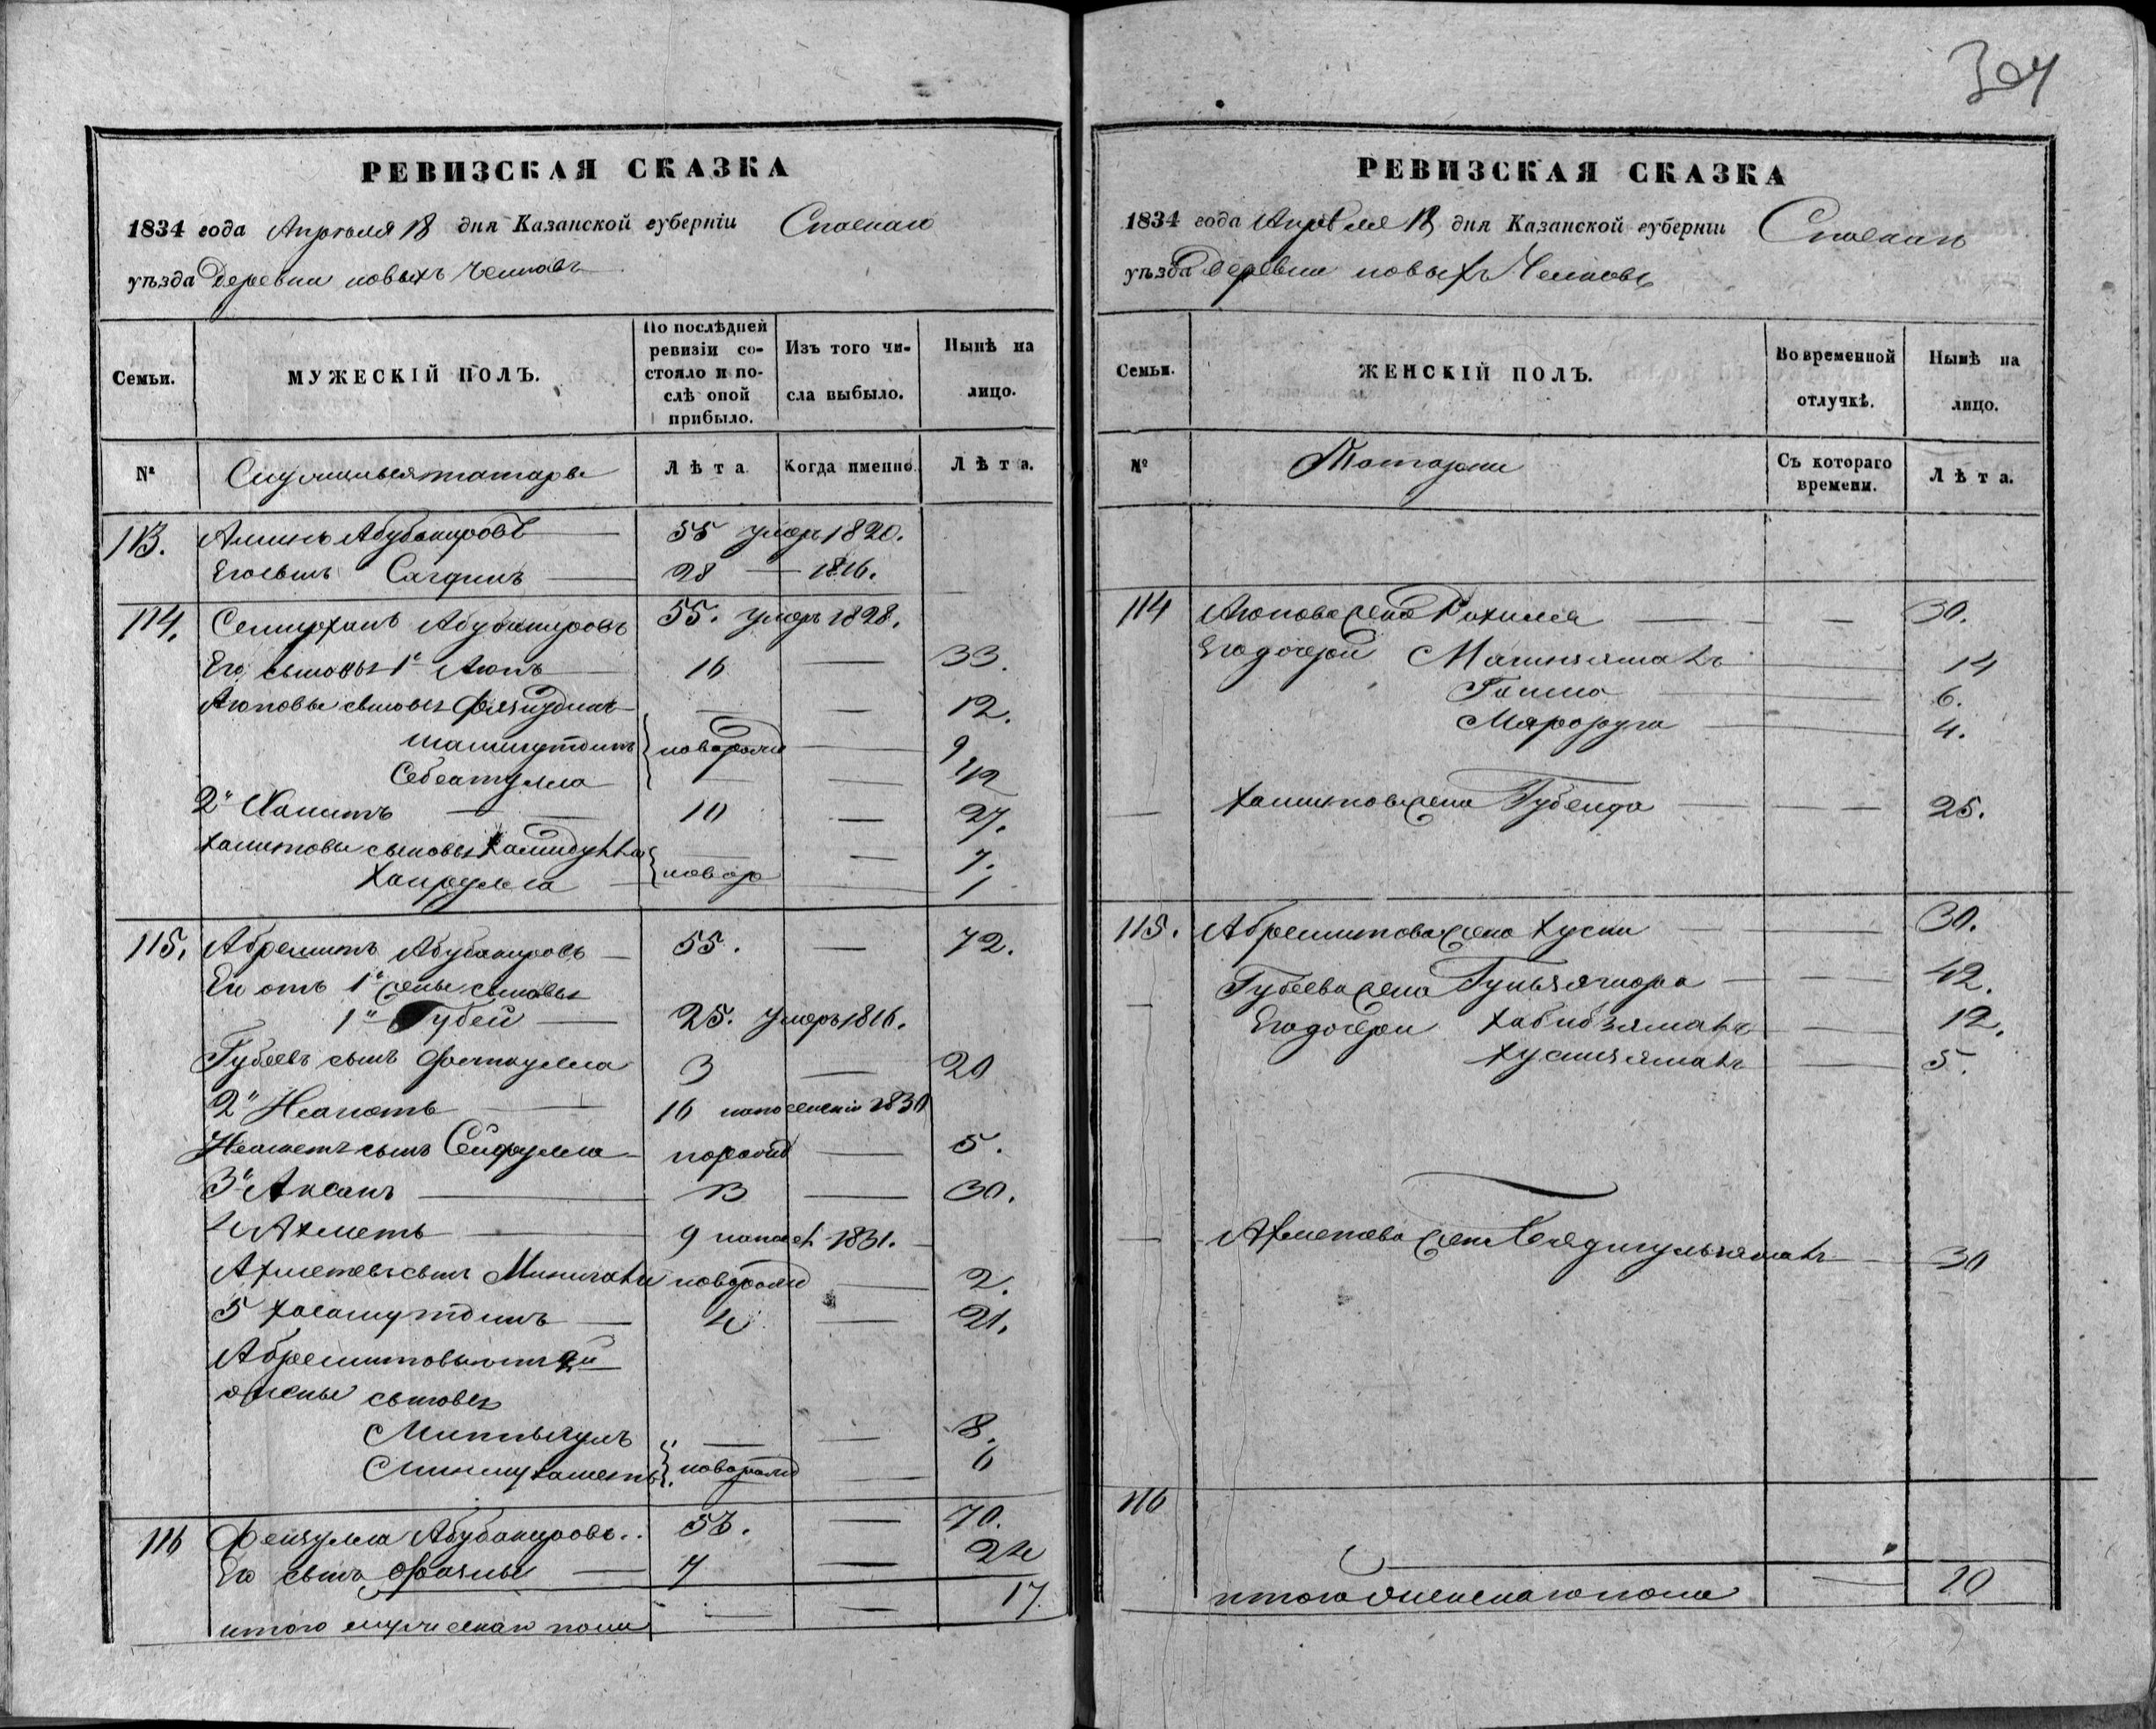 304
РЕВИЗСКАЯ СКАЗКА
1834 года Апреля 18 дня Казанской губерніи Спаскаго
уѣзда Деревни новыхъ Челновъ
Семьи.
МУЖЕСКІЙ ПОЛЪ.
По послѣдней ревизіи состояло и послѣ оной прибыло.
Изъ того числа выбыло.
Нынѣ на лицо.
№
Служилыя татары
Лѣта
Когда именно.
Лѣта.
113. Аминъ Абубакировъ — 55 умеръ 1820.
Его сынъ Сагдинъ — 28 — 1816.
114. Абубакировъ 55. умеръ 1828.
Его сыновья 1й Аюпъ — 16 — 33.
Аюповы сыновья — — 12.
новорожд — 9
— — 1/2
2й Хамитъ — 10 — 27.
Хамитовы сыновья — — 7.
Хайрулла — новор — 1
115. Абремитъ Абубакировъ — 55. — 72.
Его отъ 1й жены сыновья
1й Губей — 25. умеръ 1816.
Губеевъ сынъ Фейткулла 3 — 20
2й — 16 1830
сынъ Сейфулла — пороżд — 5.
3й Аксанъ — 13 — 30.
4 Ахметъ — 9 1831. —
Ахметевъ сынъ новорожд — 2.
5 Хасамутдинъ — 4 — 21.
Абремитовы отъ 2й
жены сыновья
— — 8.
Минмухаметь новорожд — 6
116 Фейзулла Абубакировъ.. 53. — 70.
Его сынъ — 7 — 24
итого мужескаго пола — — 17.
РЕВИЗСКАЯ СКАЗКА
1834 года Апреля 18 дня Казанской губерніи Спаскаго
уѣзда Деревни новыхъ Челновъ
Семьи.
ЖЕНСКІЙ ПОЛЪ.
Во временной отлучкѣ.
Нынѣ на лицо.
№
Татарки
Съ котораго времени.
Лѣта.
114 Аюпова жена Рахиля — — 30.
Его дочери — 14
— 6.
— 4.
— Хамитова жена Губейда — — 25.
115. Абремитова жена Хусни — — 30.
Губеева жена — — 42.
Его дочери Хабибзямалъ — — 12.
Хуснизямалъ — 5.
— Ахметева жена — 30
116
итого женскаго пола — 10